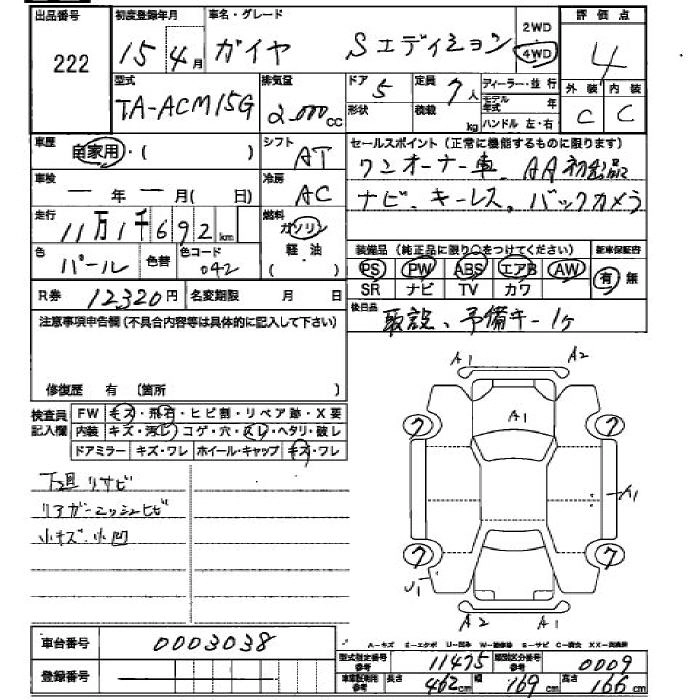 出品番号 初度登録年月 車名・グレード 2WD 評価点
222 15 4月 ガイヤ Sエディション 4WD 4
型式 排気量 ドア 定員 ディーラー・並行 外装 内装
TA-ACM15G 2.000cc 5 7人 モデル年式 年 C C
形状 積載 kg ハンドル 左・右
車歴 自家用・( ) シフト AT セールスポイント(正常に機能するものに限ります)
ワンオーナー車、AA初出品
車検 ー年ー月(日) 冷房 AC ナビ、キーレス、バックカメラ
走行 11万1千692km 燃料 ガソリン
軽・油
( )
色 パール 色替 色コード 042 装備品(純正品に限り○をつけてください) 新車保証書
PS PW ABS エアB AW 有・無
SR ナビ TV カワ
R券 12320円 名変期限 月 日 後日品
取説、予備キー1ケ
注意事項申告欄(不具合内容等は具体的に記入して下さい)
修復歴 有(箇所 )
検査員記入欄 FW キズ・飛石・ヒビ割・リペア跡・X要
内装 キズ・汚レ・コゲ・穴・スレ・ヘタリ・破レ
ドアミラー キズ・ワレ ホイール・キャップ キズ・ワレ
下廻リサビ
リアガーニッシュヒビ
小キズ・小凹
A1 A2
A1
7 7
A1
7 7
U1
A2 A1
車台番号 0003038
A-キズ E-エクボ U-凹み W-補修跡 S-サビ C-腐食 XX-交換済
型式指定番号 参考 11475 類別区分番号 参考 0009
登録番号 車車証明用 参考 長さ 462cm 幅 169cm 高さ 166cm